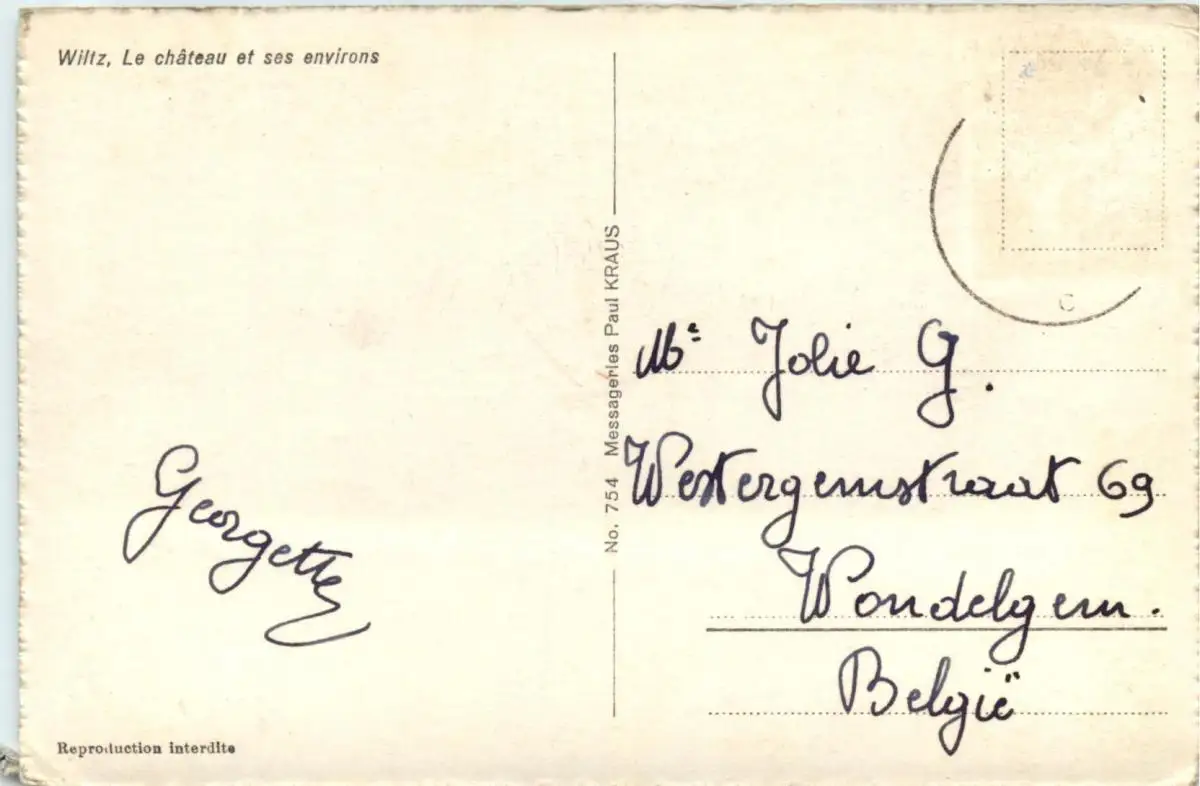 Wiltz, Le château et ses environs
Georgette
Reproduction interdite
No. 754 Messageries Paul KRAUS
Mr Jolie G.
Westergemstraat 69
Wondelgem.
België
C